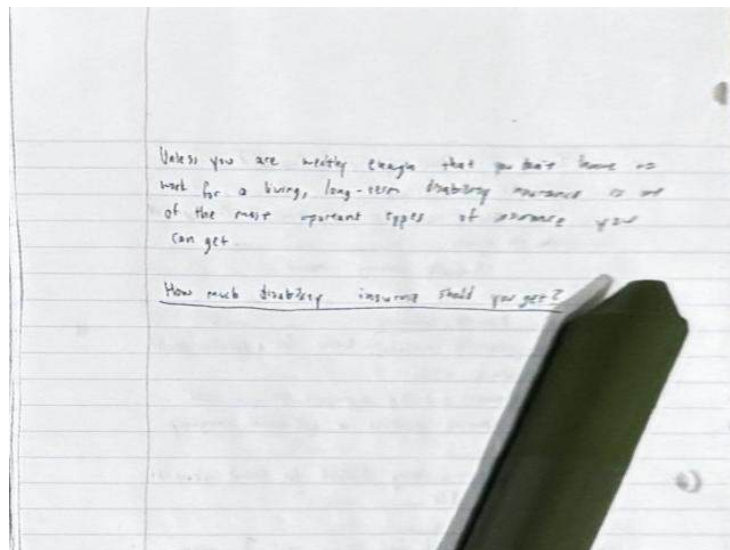 Unless you are wealthy enough that you don't have to
work for a living, long-term disability insurance is one
of the most important types of insurance you
can get.
How much disability insurance should you get?